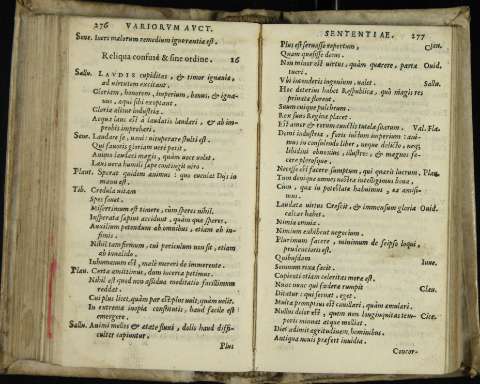 276 VARIORVM AVCT.
Sene. Iners malorum remedium ignorantia est.
Reliqua confusè & sine ordine. 16
Sallu. LAVDIS cupiditas, & timor ignauia,
ad virtutem excitant.
Gloriam, honorem, imperium, bonus, & igna-
uus, æquè sibi exoptant.
Gloria alitur industria.
Aequè laus est à laudatis laudari, & ab im-
probis improbari.
Sene. Laudare se, vani: vituperare stulti est.
Qui fauoris gloriam verè petit.
Animi laudari magis, quàm
Laus vera humili sæpe contingit viro.
Plaut. Sperat quidem animus: quo eueniat Diis in
manu est.
Tib. Credula vitam
Spes fouet.
Miserrimum est timere, cùm speres nihil.
Insperata sæpius accidunt, quàm quæ speres.
Auxilium petendum ab omnibus, etiam ab in-
fimis.
Nihil tam firmum, cui periculum non sit, etiam
ab inualido.
Inhumanum est, malè mereri de immerente.
Plau. Certa amittimus, dum incerta petimus.
Nihil est quod non assidua meditatio facillimum
reddat.
Cui plus licet, quàm par est, plus vult, quàm velit.
In extrema inopia constitutis, haud facile est
emergere.
Sallu. Animi molles & ætate fluxi, dolis haud diffi-
culter capiuntur.
Plus
SENTENTIAE. 277
Plus est seruasse repertum, Cleu.
Quàm quæsisse decus.
Non minor est virtus, quàm quærere, parta Ouid.
tueri.
Vbi intenderis ingenium, valet. Sallu.
Hæc deterius habet Respublica, quò magis res
priuatæ florent.
Suum cuique pulchrum.
Rex suus Regina placet.
Est amor & rerum cunctis tutela suarum. Val. Fla.
Domi industria, foris iustum imperium: ani-
mus in consulendo liber, neque delicto, neq;
libidini obnoxius, illustres & magnos fa-
cere plerosque.
Necesse est facere sumptum, qui quærit lucrum. Plau.
Tum denique omnes nostra intelligimus bona,
Cùm, quæ in potestate habuimus, ea amisi-
mus.
Laudata virtus Crescit, & immensum gloria Ouid.
calcar habet.
Nimia omnia,
Nimium exhibent negocium.
Plurimum facere, minimum de seipso loqui,
prudentioris est.
Quibusdam Iuue.
Sermonum rixa facit.
Cupienti etiam celeritas mora est.
Nunc nunc qui fœdera rumpit Clau.
Ditatur: qui seruat, eget.
Multa promptius est cauillari, quàm æmulari.
Nullus dolor est, quem non longinquitas tem- Cice.
poris minuat atque molliat.
Dies adimit ægritudinem hominibus.
Antiqua noui præfert inuidia.
Concor-